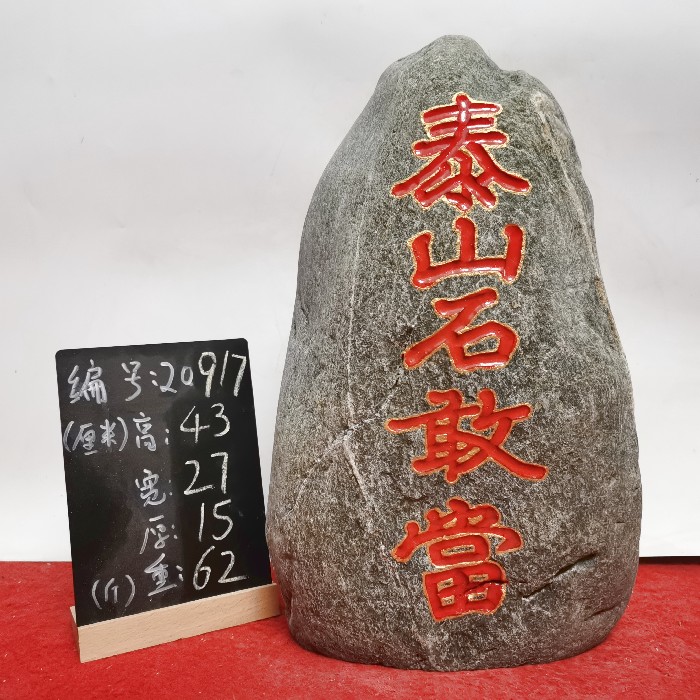 泰山石敢當
编号:20917
(厘米)高:43
宽:27
厚:15
(斤)重:62